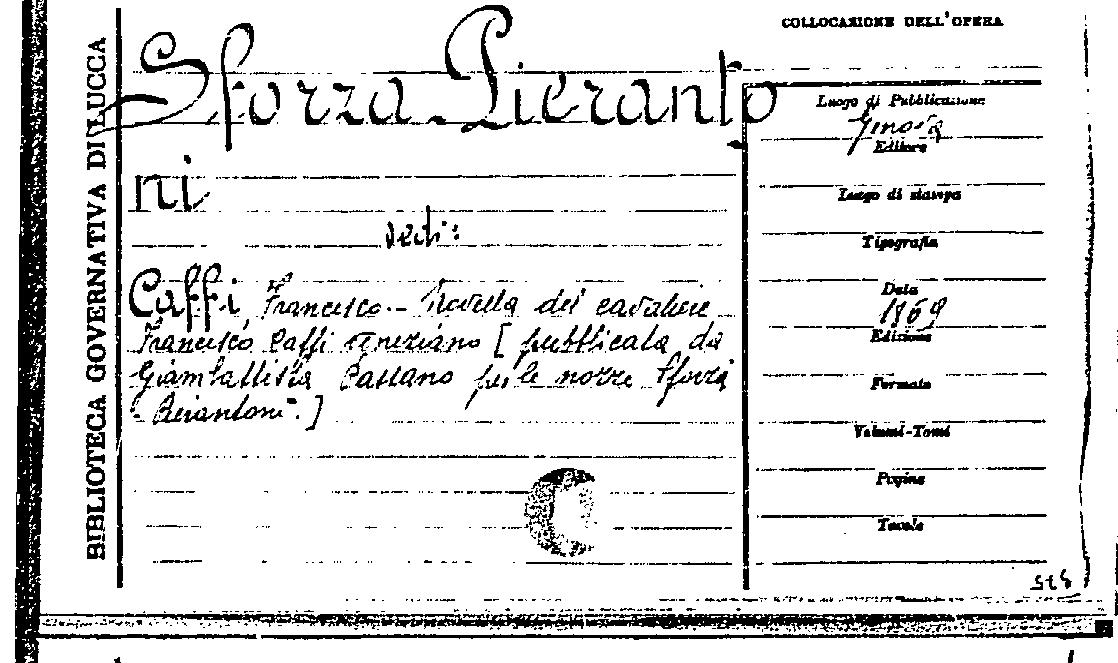 BIBLIOTECA GOVERNATIVA DI LUCCA
COLLOCAZIONE DELL'OPERA
Sforza-Pieranto
ni
vedi:
Caffi Francesco.- Novella del cavaliere
Francesco Caffi veneziano [pubblicata da
Giambattista Passano per le nozze Sforza
- Pierantoni.]
Luogo di Pubblicazione
Genova
Editore
Luogo di stampa
Tipografia
Data
1869
Edizione
Formato
Volumi-Tomi
Pagine
Tavole